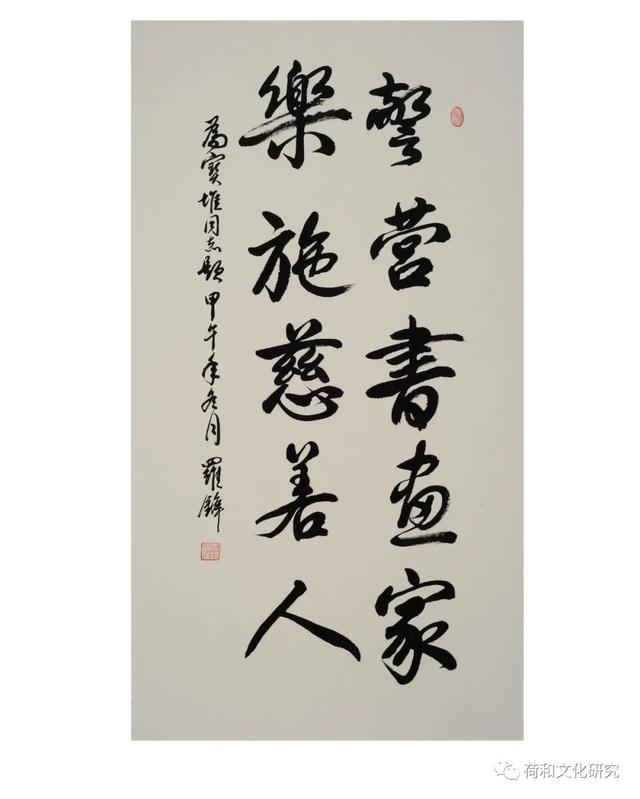 警营书画家
樂施慈善人
為寶堆同志題甲午年冬月羅鋒
荷和文化研究